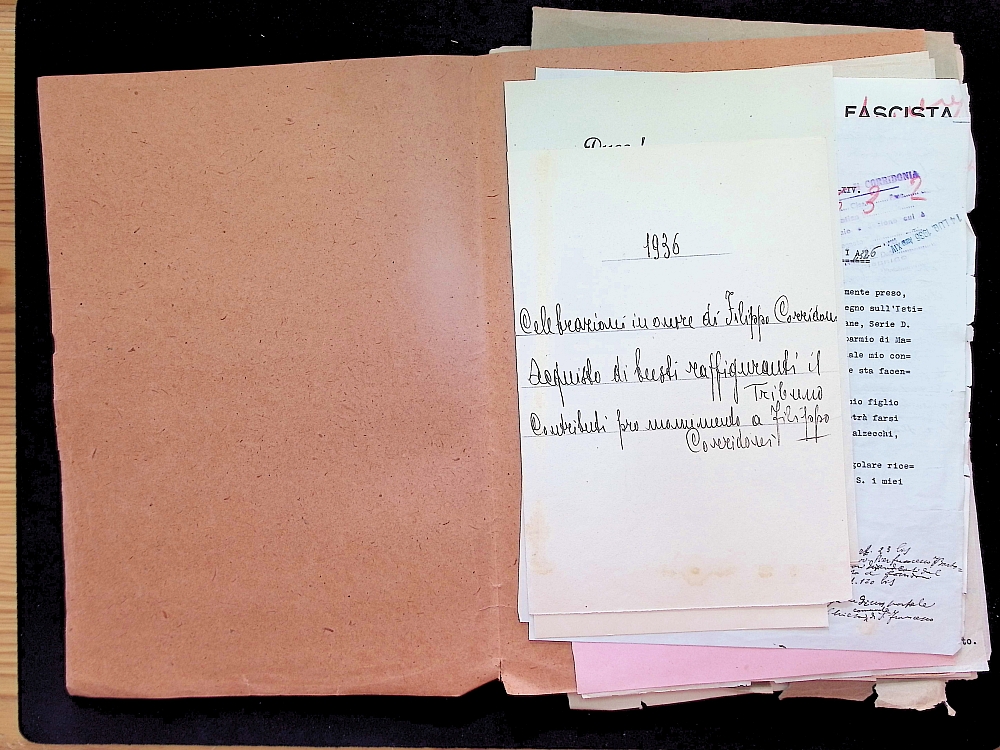 Duce!
1936
Celebrazioni in onore di Filippo Corridoni
Acquisto di busti raffiguranti il
Tribuno
Contributi pro monumento a Filippo
Corridoni
FASCISTA
CORRIDONIA
3 2
mente preso,
egno sull'Isti=
ane, Serie D.
parmio di Ma=
ale mio con=
e sta facen=
nio figlio
trà farsi
alzecchi,
golare rice=
S. i miei
to.